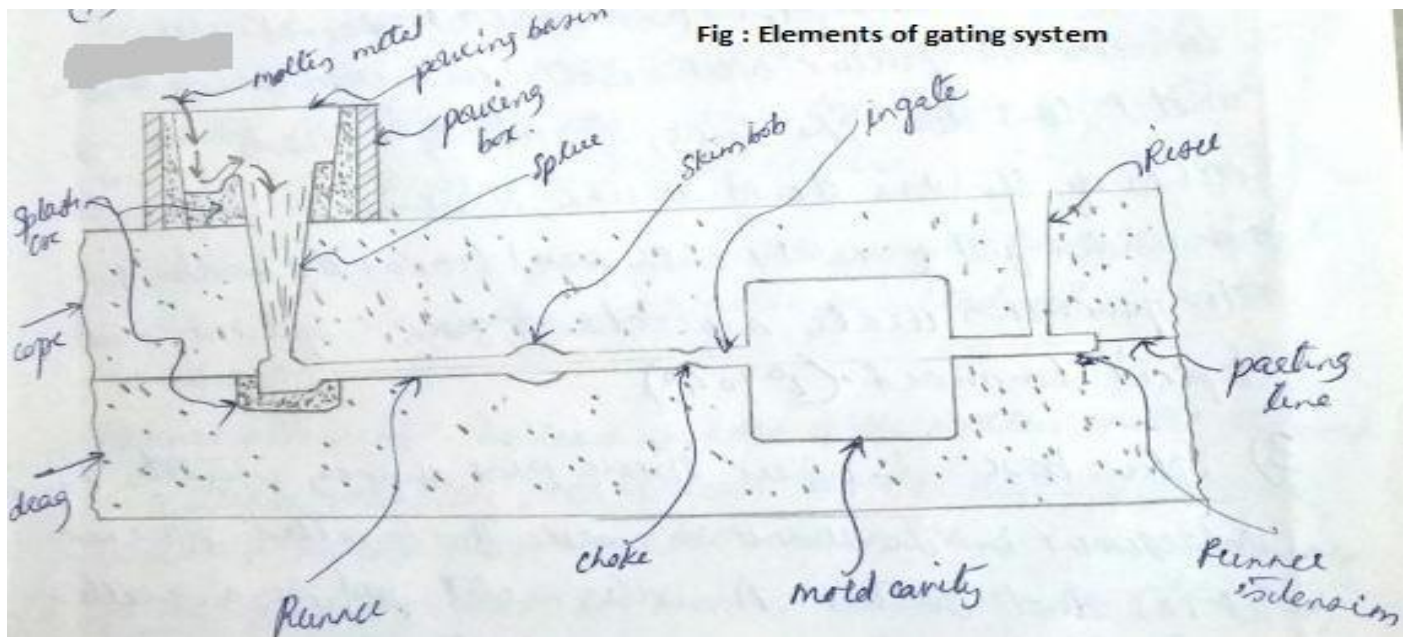 Fig : Elements of gating system
molten metal
pouring basin
pouring
box.
Sprue
Skimbob
ingate
Riser
Splash
core
cope
drag
parting
line
Runner
choke
mold cavity
Runner
extension